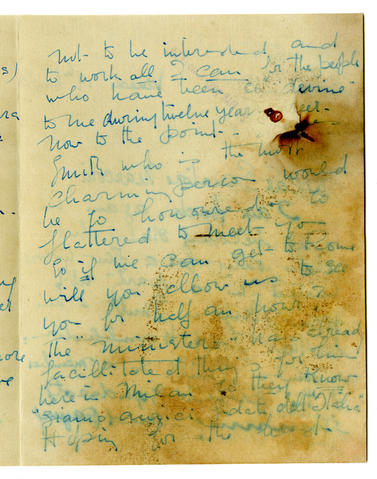 s)
not to be interested and
to work all I can for the people
who have been so devine
to me during twelve years
Now to the point -
Smith who is the most
Charming person would
be so honoured &
flattered to meet you
So if we can get to Rome
will you allow us to see
you for half an hour?
The "Ministero" has already
facilitated things for him
here in Milan as they know
"siamo amici
Hoping for the